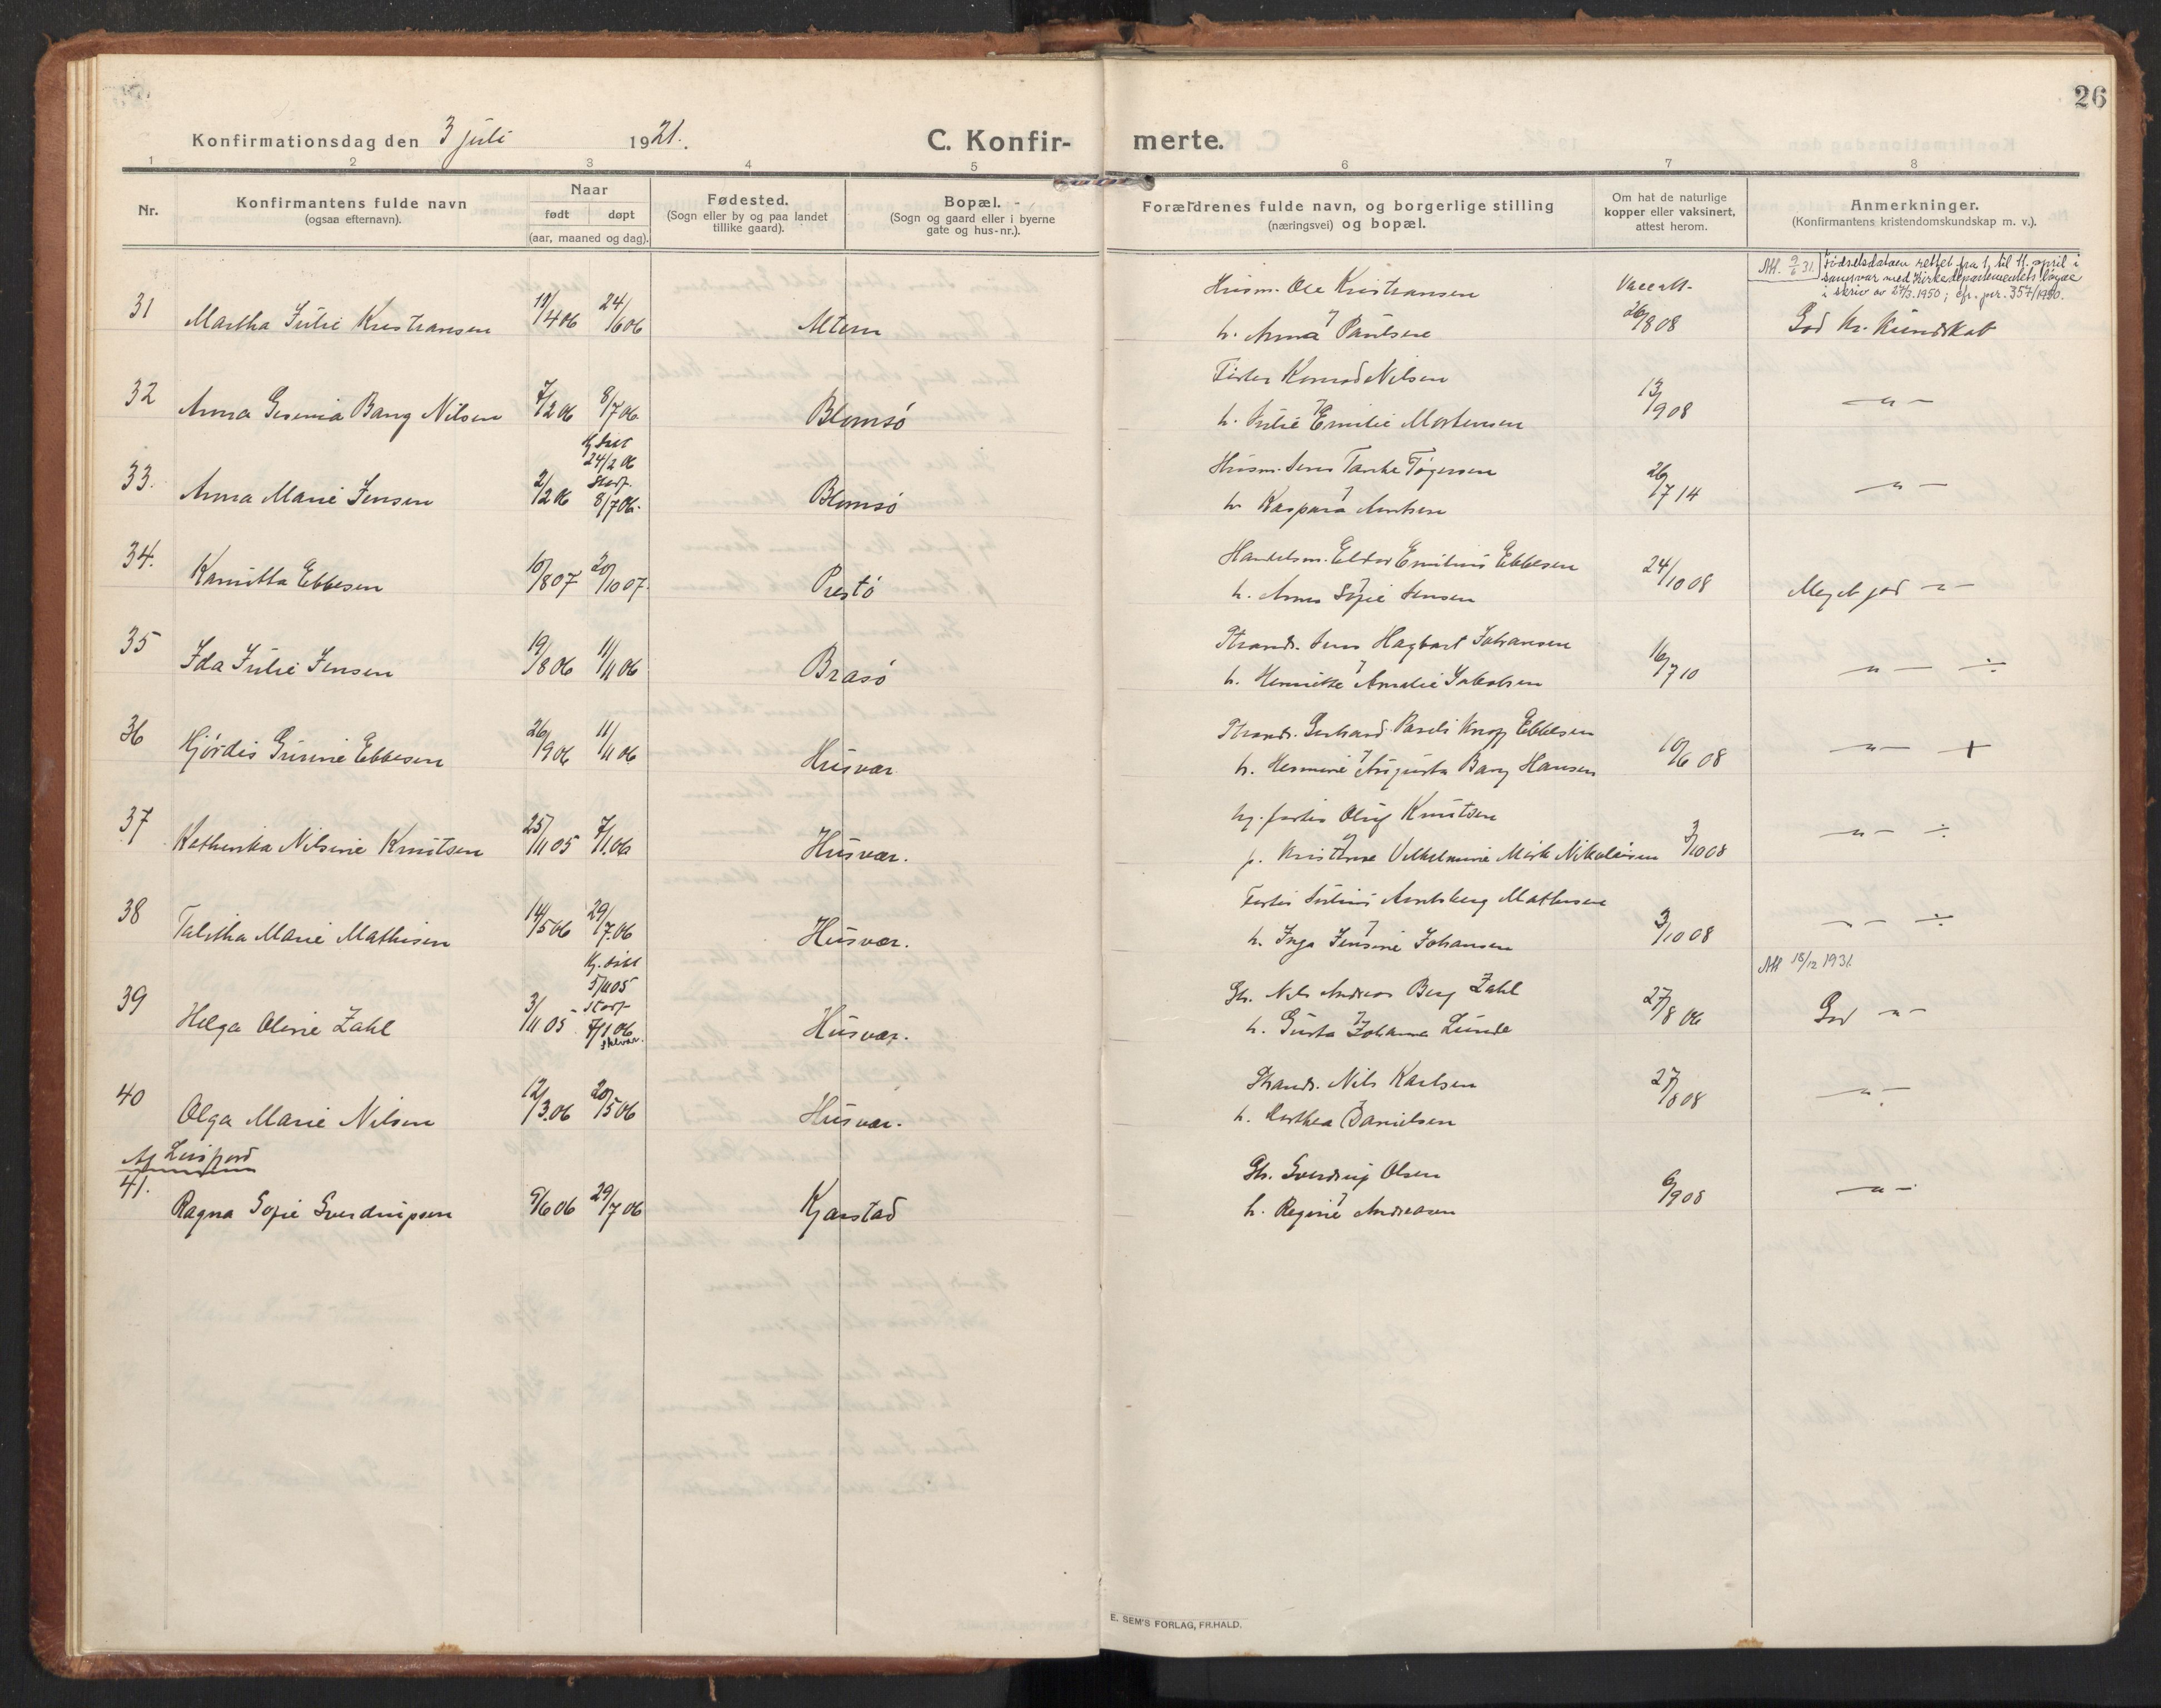 26
Konfirmationsdag den 3 juli 1921.
C. Konfir-
merte.
1 2 3 4 5 6 7 8
Nr.
Konfirmantens fulde navn
(ogsaa efternavn).
Naar
født døpt
(aar, maaned og dag).
Fødested.
(Sogn eller by og paa landet
tillike gaard).
Bopæl.
(Sogn og gaard eller i byerne
gate og hus-nr.).
Forældrenes fulde navn, og borgerlige stilling
(næringsvei) og bopæl.
Om hat de naturlige
kopper eller vaksinert,
attest herom.
Anmerkninger.
(Konfirmantens kristendomskundskap m. v.).
Att. 9/6 31. Fødselsdataen rettet fra 1. til 11. april i
samsvar med Kirkedepartementets
i skriv av 27/3.1950; cfr. 357/1950.
Husm. Ole Kristiansen Vacc att.
31 Martha Julie Kristiansen 11/4 06 24/6 06 Altern h. Anna Paulsen 26/8 08 God kr. kundskab
Fisker Konrad Nilsen
32 Anna Gesenia Bang Nilsen 7/2 06 8/7 06 Blomsö h. Julie Emilie Mortensen 13/9 08 — " —
Hj. døbt
24/2 06
Husm. Jens Tanke Tøgersen
33. Anna Marie Jensen 2/2 06 Stadf. 8/7 06. Blomsö h. Kaspara Arntsen 26/7 14 — " —
Handelsm. Eldor Emilius Ebbesen
34. Kamitta Ebbesen 10/8 07 20/10 07. Prestö h. Anna Sofie Jensen 24/10 08 Meget god — " —
Strands. Jens Hagbart Johansen
35 Ida Julie Jensen 19/8 06 11/11 06 Brasö h. Henrikke Amalie Jakobsen 16/7 10 — " — ÷
Strands. Gerhard Pareli Knoff Ebbesen
36 Hjørdis Gunnie Ebbesen 26/9 06 11/11 06 Husvær h. Hermine Augusta Bang Hansen 10/6 08 — " — +
Ug. fisker Oluf Knutsen
37 Kathinka Nilsine Knutsen 25/11 05 7/1.06 Husvær. p. Kristine Vilhelmine Mark Nikolaisen 3/10 08 — " — ÷
Fisker Julius Arntsberg Mathisen
38 Talitha Marie Mathisen 14/5 06 29/7.06 Husvær. h. Inga Jensine Johansen 3/10 08 — " — ÷
Hj. døbt
5/11 05
Att 18/12 1931.
Gbr. Nils Andreas Berg Zahl
39 Helga Oline Zahl 3/11 05 Stadf. 7/1.06 Husvær. h. Gusta Johanna Lunde 27/8 06 God — " —
Strands. Nils Karlsen
40 Olga Marie Nilsen 12/3.06 20/5 06 Husvær. h. Dorthea Danielsen 27/8 08 — " —
Af Leirfjord
Gbr. Sverdrup Olsen
41. Ragna Sofie Sverdrupsen 5/6 06 29/7 06 Kjærstad h. Regine Andreasen 6/9 08 — " —
E. SEM'S FORLAG, FR.HALD.